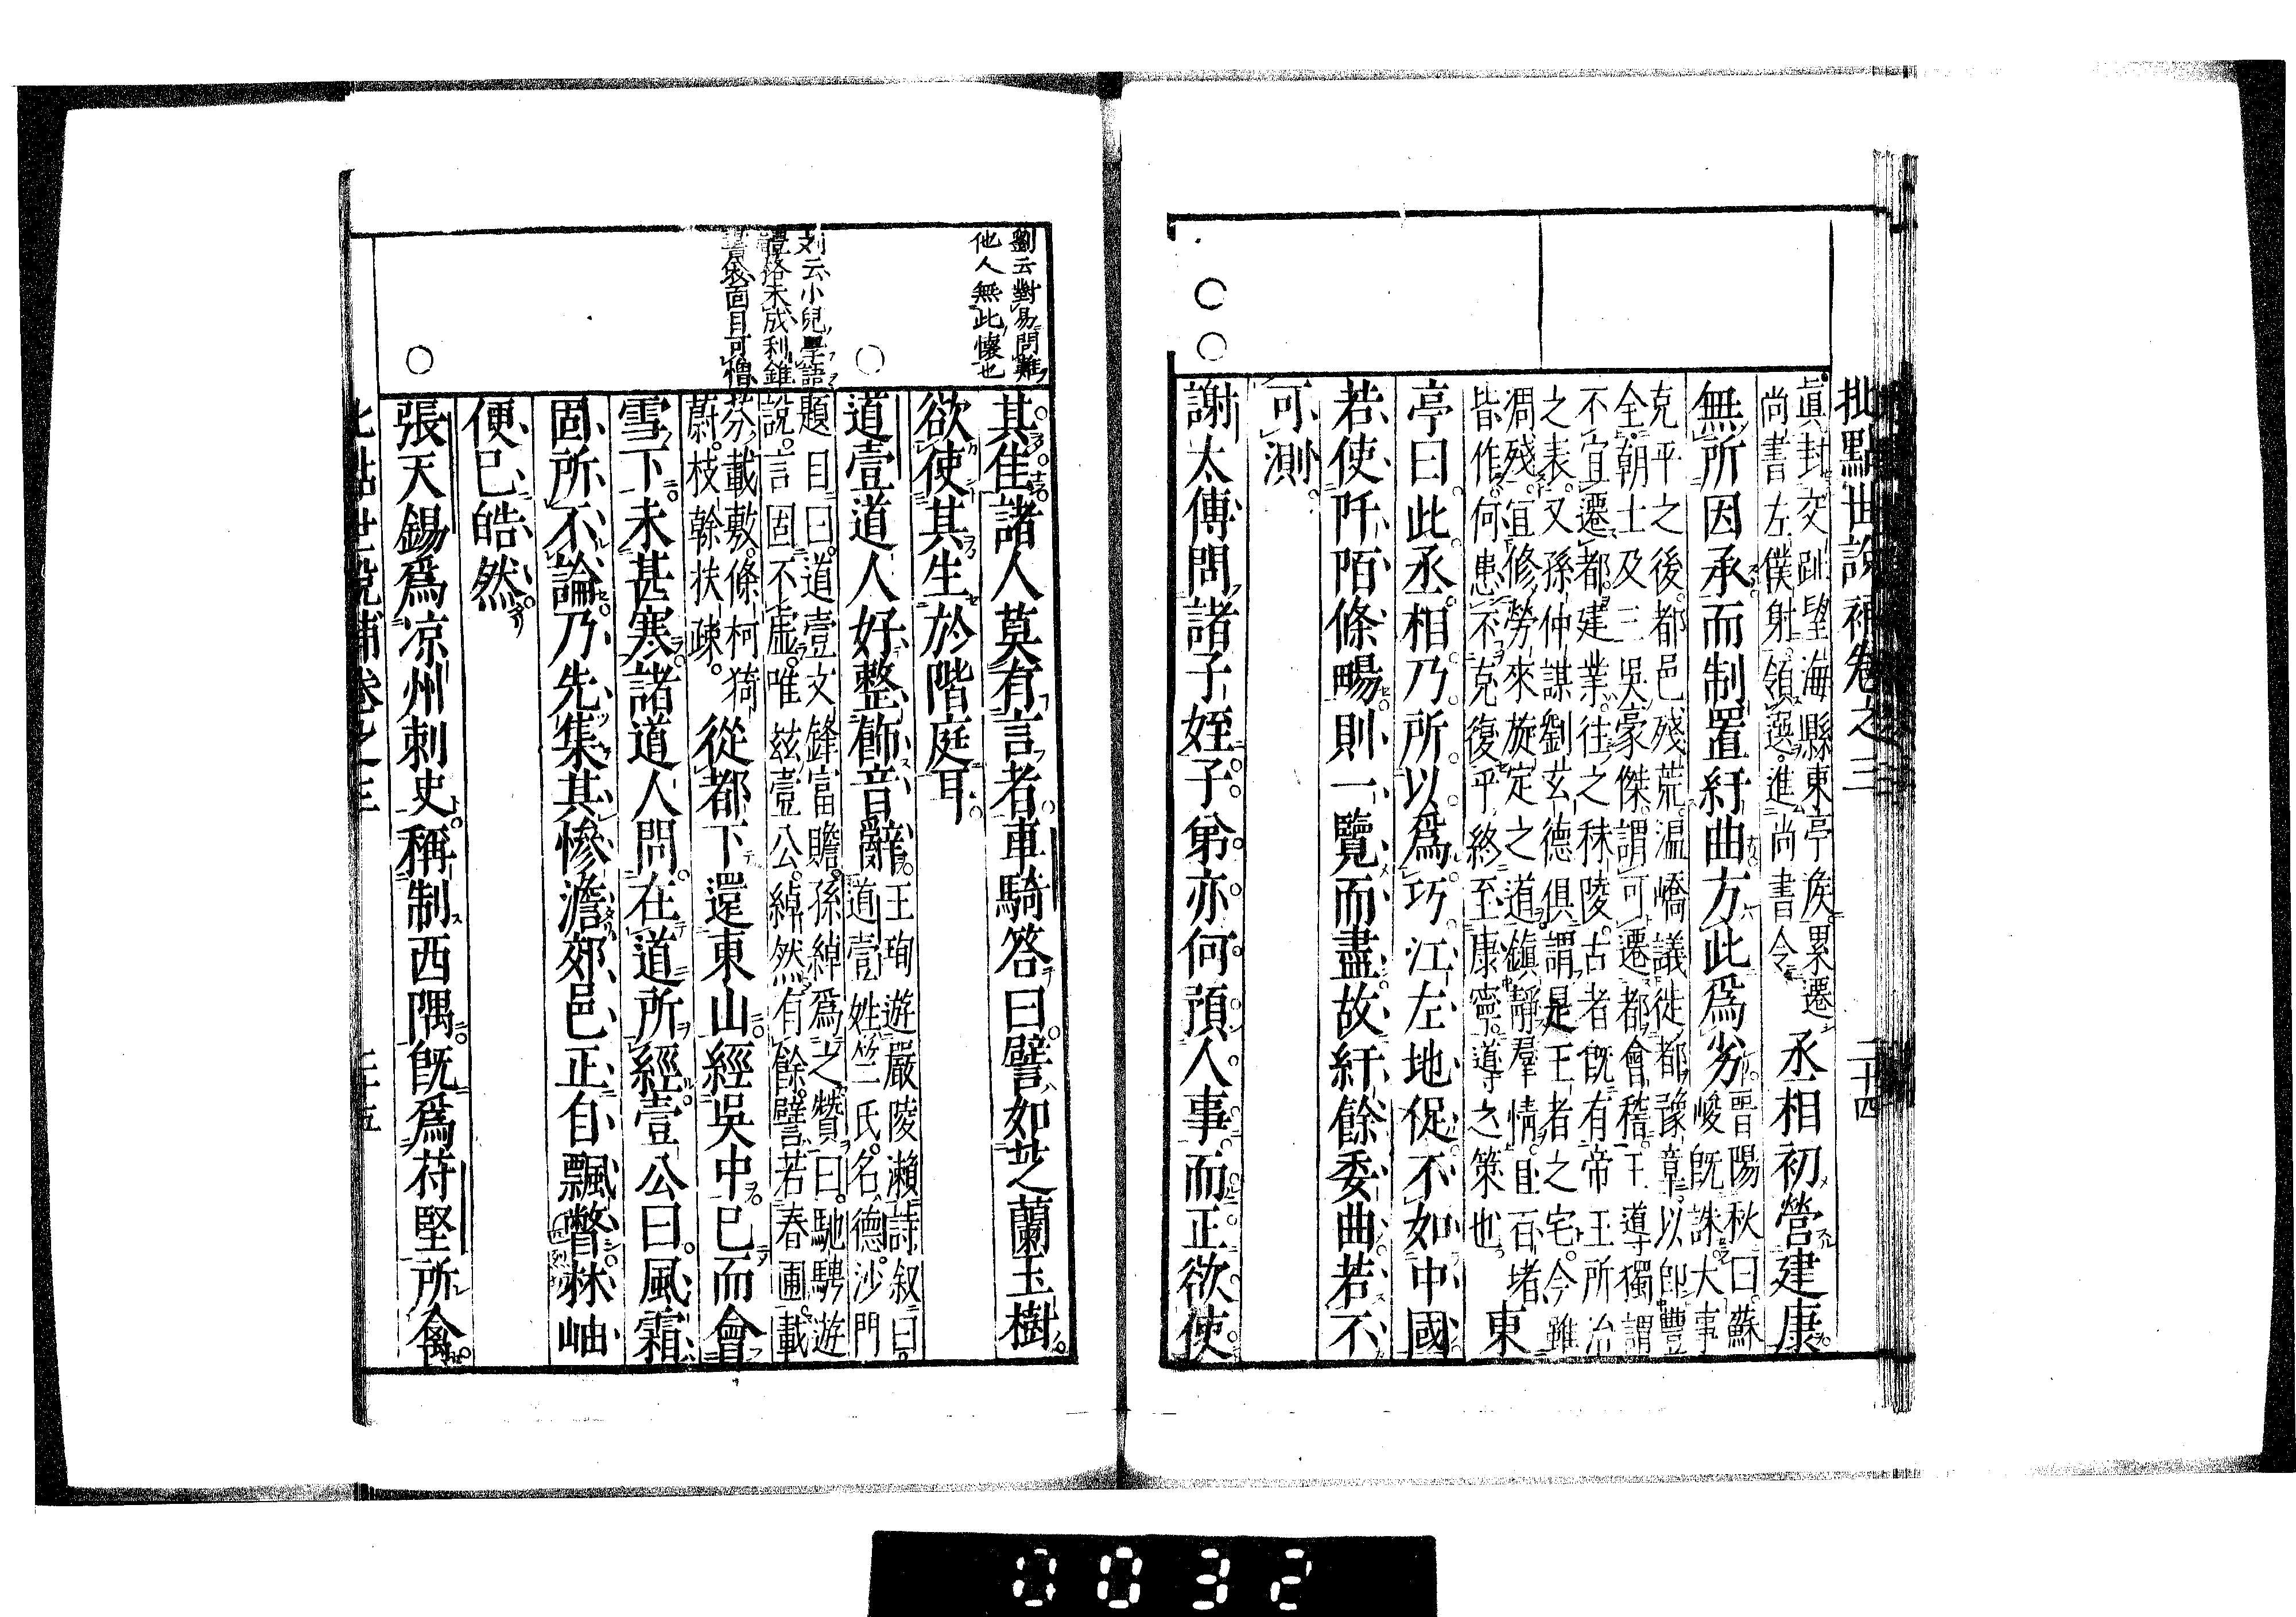 批點世說補卷之三
二十四
眞封交趾望海縣東亭侯累遷
尚書左僕射領選進尚書令
丞相初營建康
無所因承而制置紆曲方此爲劣
晉陽秋曰蘇
峻旣誅大事
克平之後都邑殘荒溫嶠議徙都豫章以卽豐
全朝士及三吳豪傑謂可遷都會稽王導獨謂
不宜遷都建業往之秣陵古者旣有帝王所治
之表又孫仲謀劉玄德俱謂是王者之宅今雖
凋殘宜修勞來旋定之道鎭靜羣情且百堵
皆作何患不克復乎終至康寧導之策也
東
亭曰此丞相乃所以爲巧江左地促不如中國
若使阡陌條暢則一覽而盡故紆餘委曲若不
可測
謝太傅問諸子姪子弟亦何預人事而正欲使
劉云對易問難
他人無此懷也
其佳諸人莫有言者車騎答曰譬如芝蘭玉樹
欲使其生於階庭耳
道壹道人好整飾音辭
王珣遊嚴陵瀨詩叙曰
道壹姓竺氏名德沙門
題目曰道壹文鋒富贍孫綽爲之贊曰馳騁遊
說言固不虛唯兹壹公綽然有餘譬若春圃載
芬載敷條柯猗
蔚枝幹扶疎
云小兒學語
未成利錐
面目可憎
從都下還東山經吳中已而會
雪下未甚寒諸道人問在道所經壹公曰風霜
固所不論乃先集其慘澹郊邑正自飄瞥林岫
便已皓然
張天錫爲凉州刺史稱制西隅旣爲苻堅所禽
世說補卷之三
二十五
0032